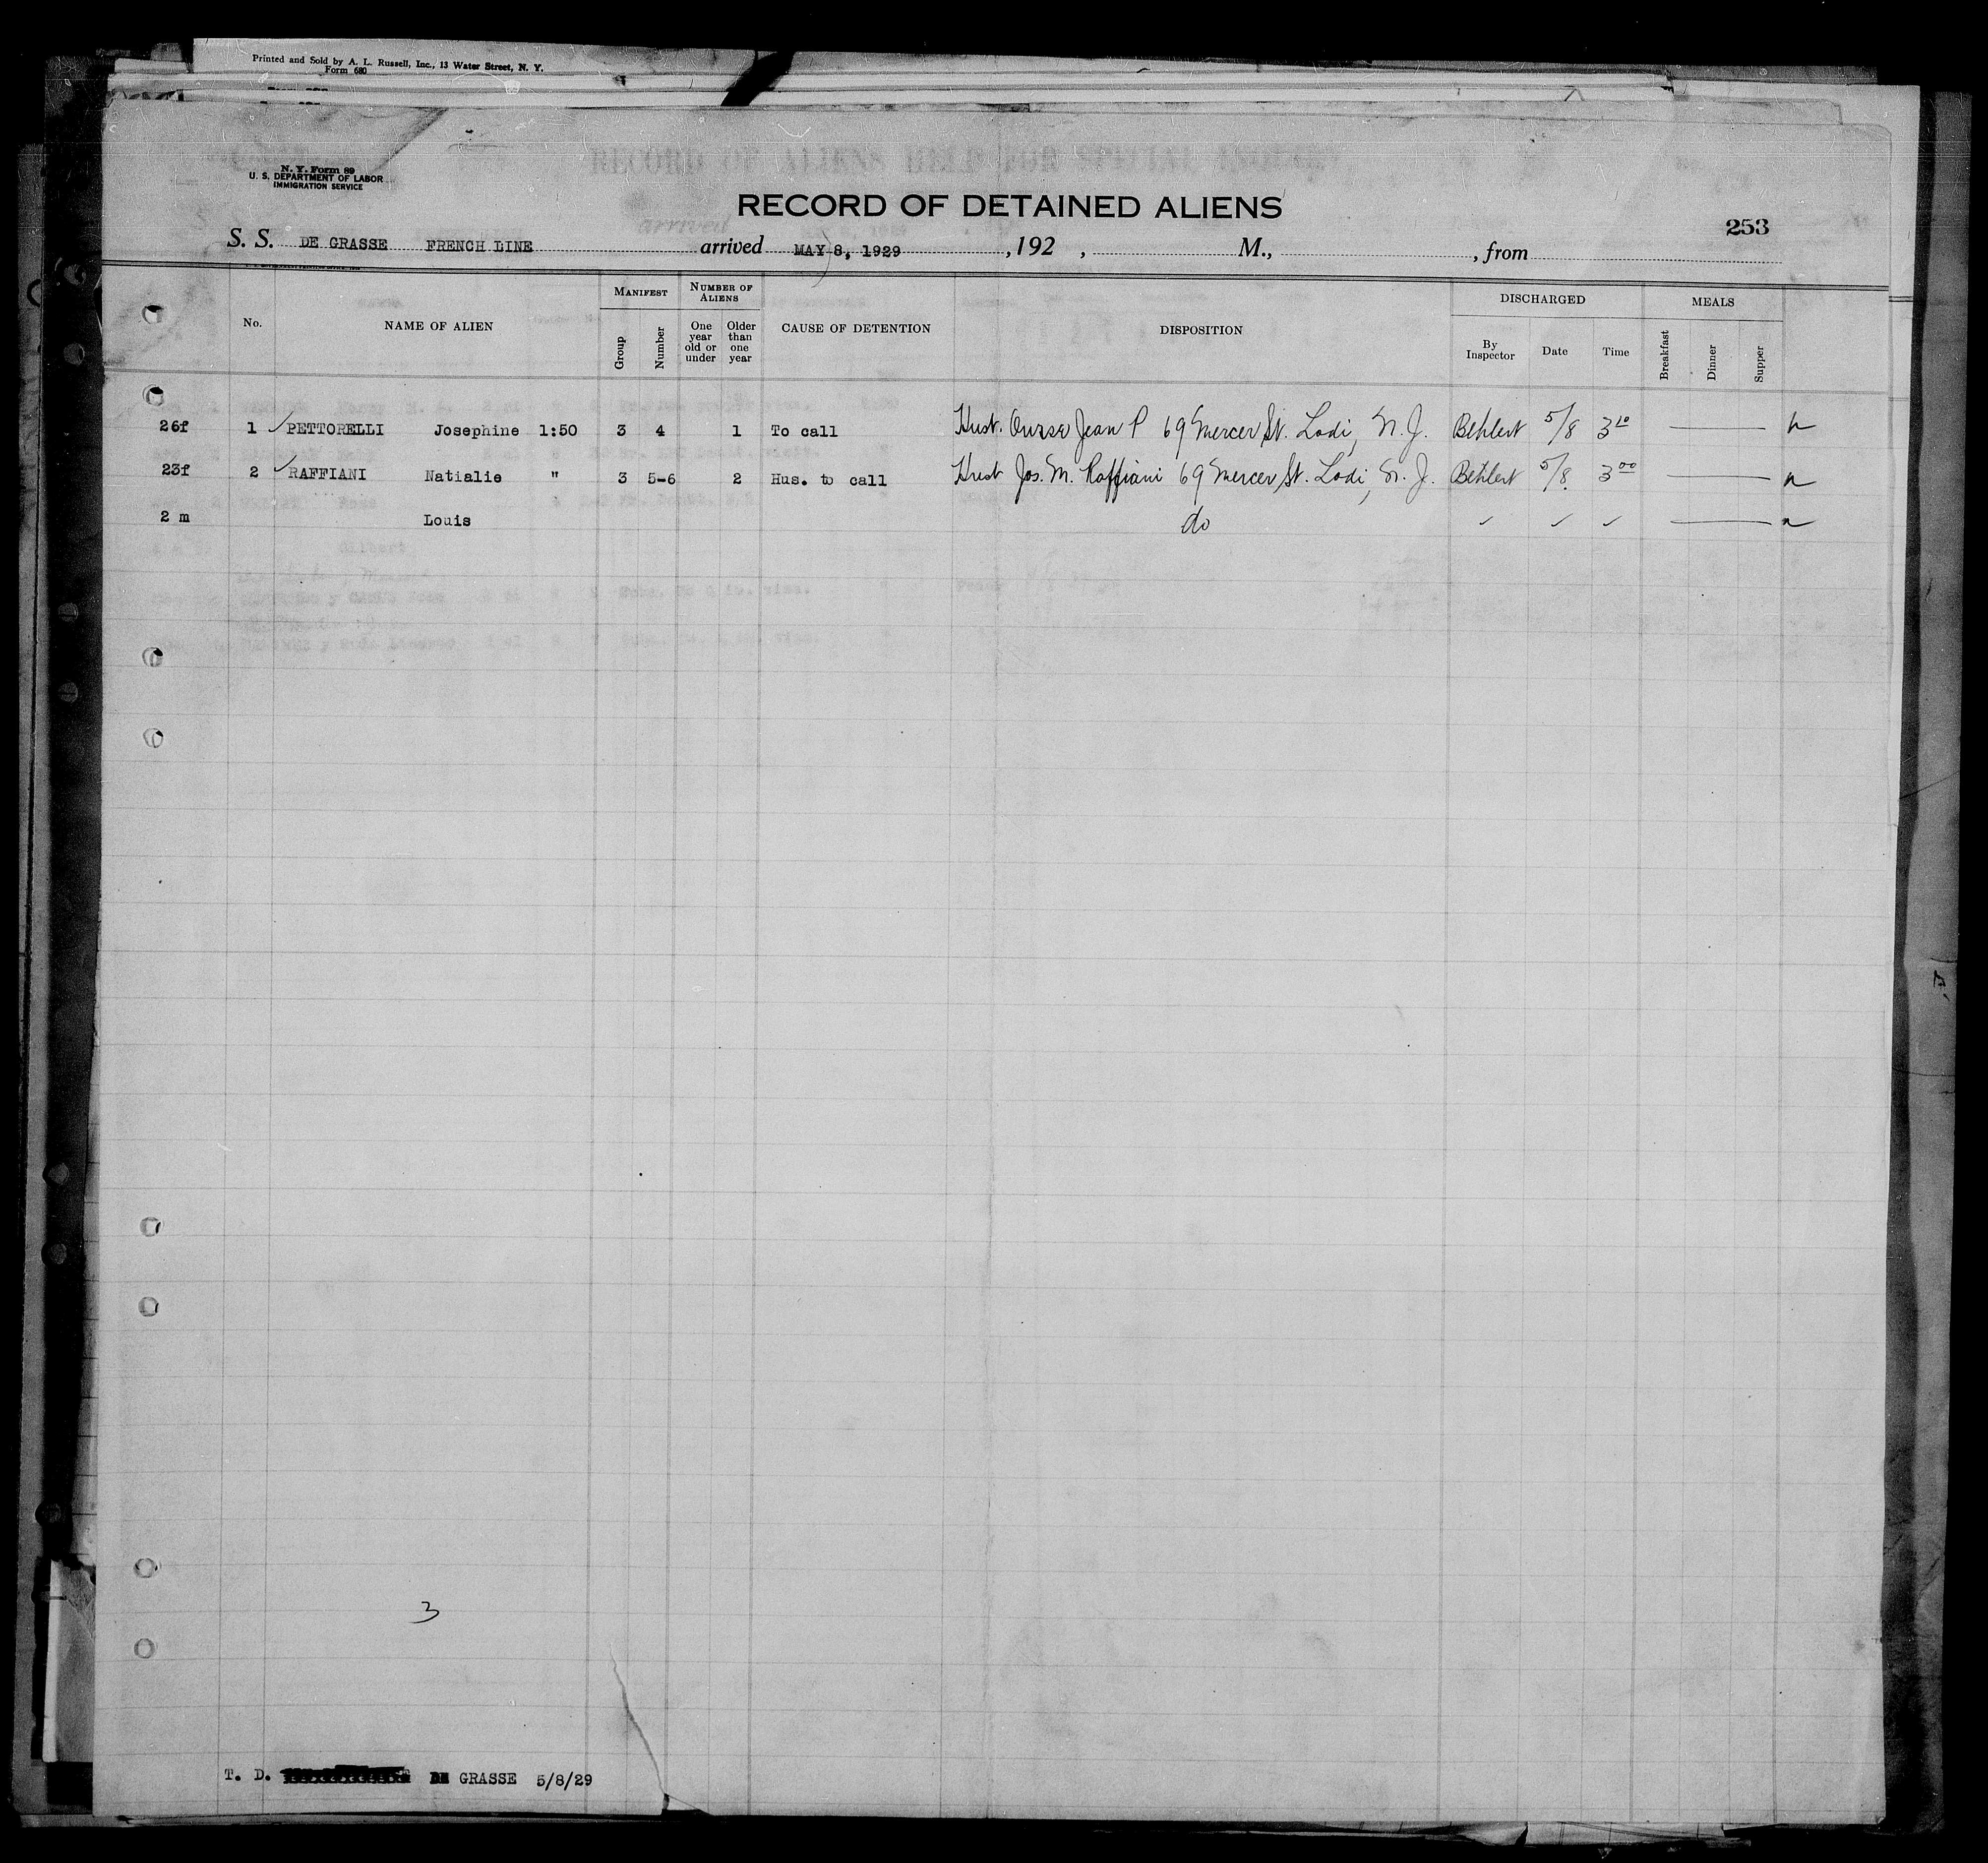 Printed and Sold by A. L. Russell, Inc., 13 Water Street, N. Y.
Form 680
RECORD OF ALIENS HELD FOR SPECIAL INQUIRY
N. Y. Form 89
U. S. DEPARTMENT OF LABOR
IMMIGRATION SERVICE
RECORD OF DETAINED ALIENS
253
S. S. DE GRASSE FRENCH LINE arrived MAY 8, 1929 , 192 , M., , from
No. NAME OF ALIEN MANIFEST Group Number NUMBER OF ALIENS One year old or under Older than one year CAUSE OF DETENTION DISPOSITION DISCHARGED By Inspector Date Time MEALS Breakfast Dinner Supper
26f 1 ✓ PETTORELLI Josephine 1:50 3 4 1 To call Hust. Jean P 69 Mercer St. Lodi, N. J. Behlert 5/8 3 10
23f 2 ✓ RAFFIANI Natialie " 3 5-6 2 Hus. to call Hust Jos. M. Raffiani 69 Mercer St. Lodi, N. J. Behlert 5/8 3 00
2 m Louis do ✓ ✓ ✓
3
T. D. DE GRASSE 5/8/29